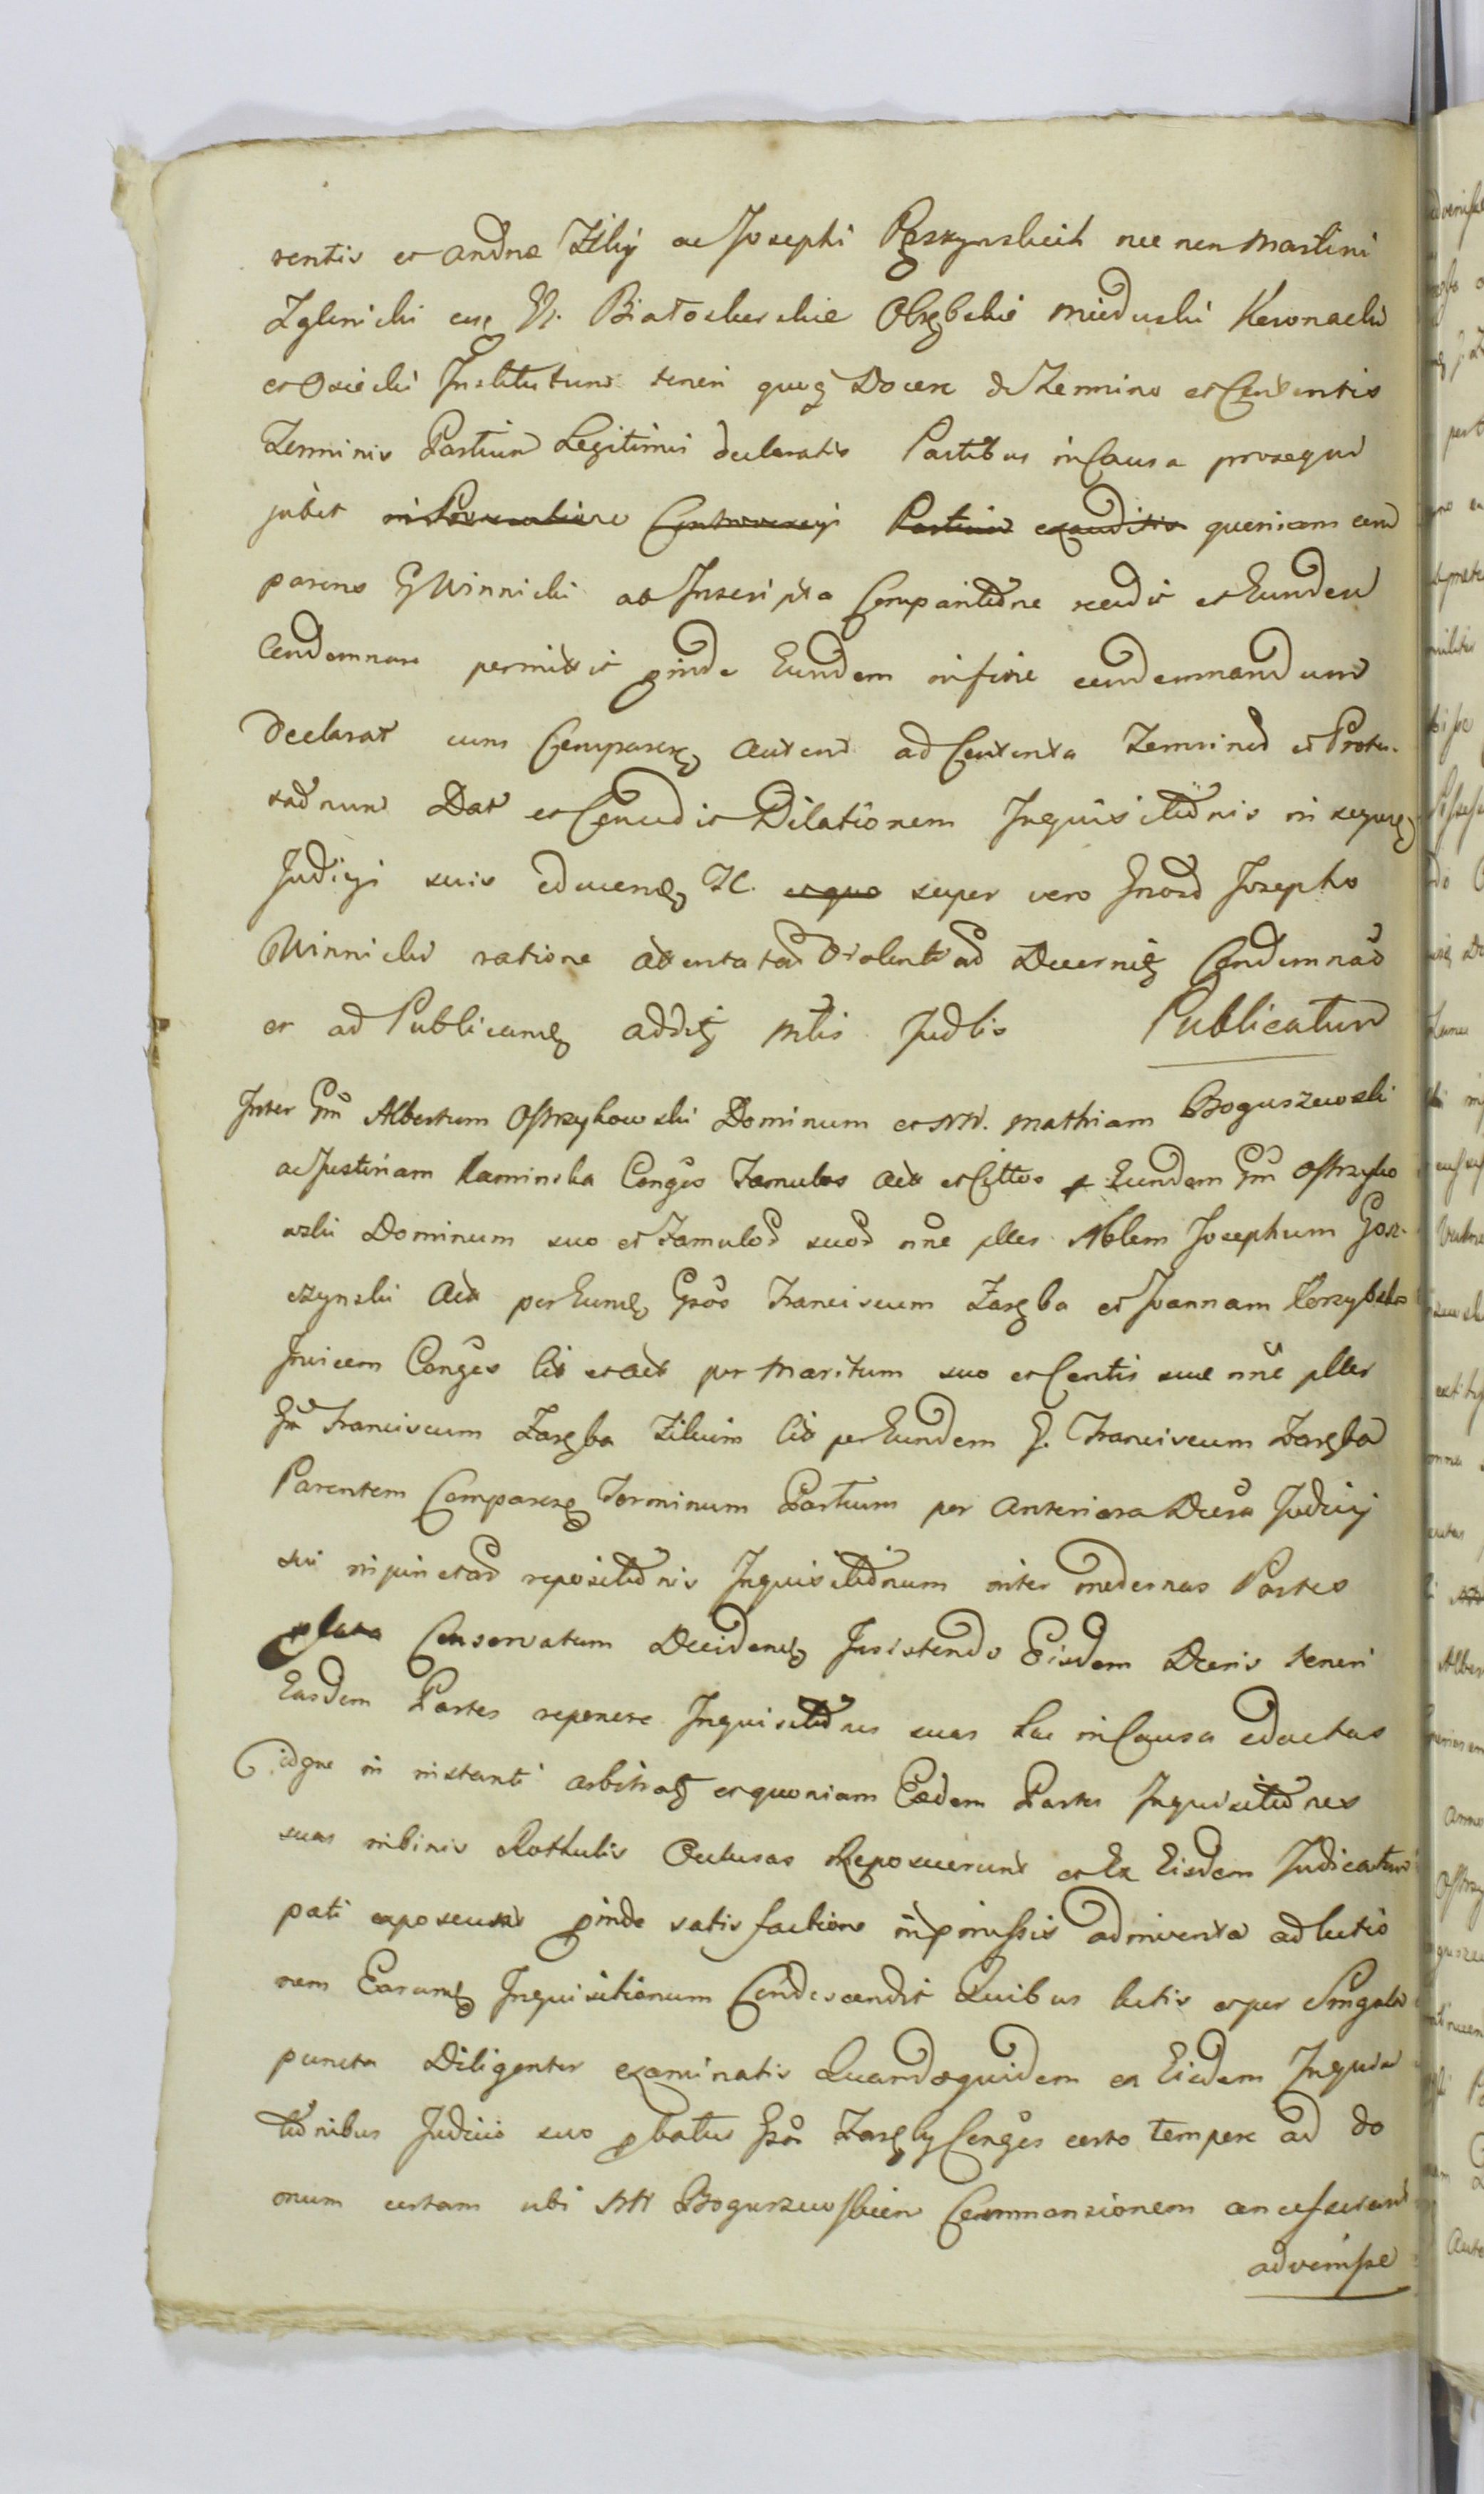 rentis et andnæ Filij ac Josephi Pęskynskich nec non Martini
Zglinicki eusq N. Białoskurskie Obrębskie Mieduski Koronacki
et Osiecki Institutum teneri quoq Docere de Termino et Contentis
Terminis Partium Legitimis declaratis Partibus in Causa prosequi
jubet in Controversijs Partium exauditis quoniam com
parens G Winnicki ab Inscripta Comparitione recedit et Eundem
Condemnare permittit proinde Eundem in fine condemnandum
Declarat cum Comparen autem ad Contenta Terminor et Protes
taonum Dat et Concedit Dilationem Inquisitionis in sequen
Judicijs suis educen Tt. super vero Gnoso Josepho
Winnicki ratione attentatar Violentiar Decernit Condemnaō
et ad Publicand addit Mtis Judlis Publicatum
Inter Gm Albertum Ostrzykowski Dominum et NN. Mathiam Boguszewski
ac Justinam Kaminska Conges Famulos Act et Cittos Eundem Gm Ostrzyko
wski Dominum suo et Famulor suor nne plles Nblem Josephum Gos-
czynski Act per Eund Gsos Franciscum Zaręba et Joannam Korzybska
Invicem Conges Cit et Act per Maritum suo et Contis suæ nne plles
Gm Franciscum Zaręba Filium Cit per Eundem G. Franciscum Zaręba
Parentem Comparen Terminum Partium per anteriora Decra Judicij
sui in punctar repositionis Inquisitionum inter modernas Partes
Conservatum Decidend Insistendo Eisdem Decris teneri
Easdem Partes reponere Inquisitiones suas hac in Causa eductas
idque in instanti arbitratq et quoniam Eædem Partes Inquisitiones
suas in binis Rothulis Occlusas Reposuerunt et Ex Eisdem Judicatum
pati exposcunt proinde satisfactione in præmissis adinventa ad lectio
nem Earund Inquisitionum Condescendit Quibus lectis et per Singula
puncta Diligenter examinatis Quandoquidem ex Eisdem Inquisi
tionibus Judicio suo probatur Gsos Zaręby Conges certo tempore ad do
mum certam ubi NN Boguszewskien Commansionem
advenisse